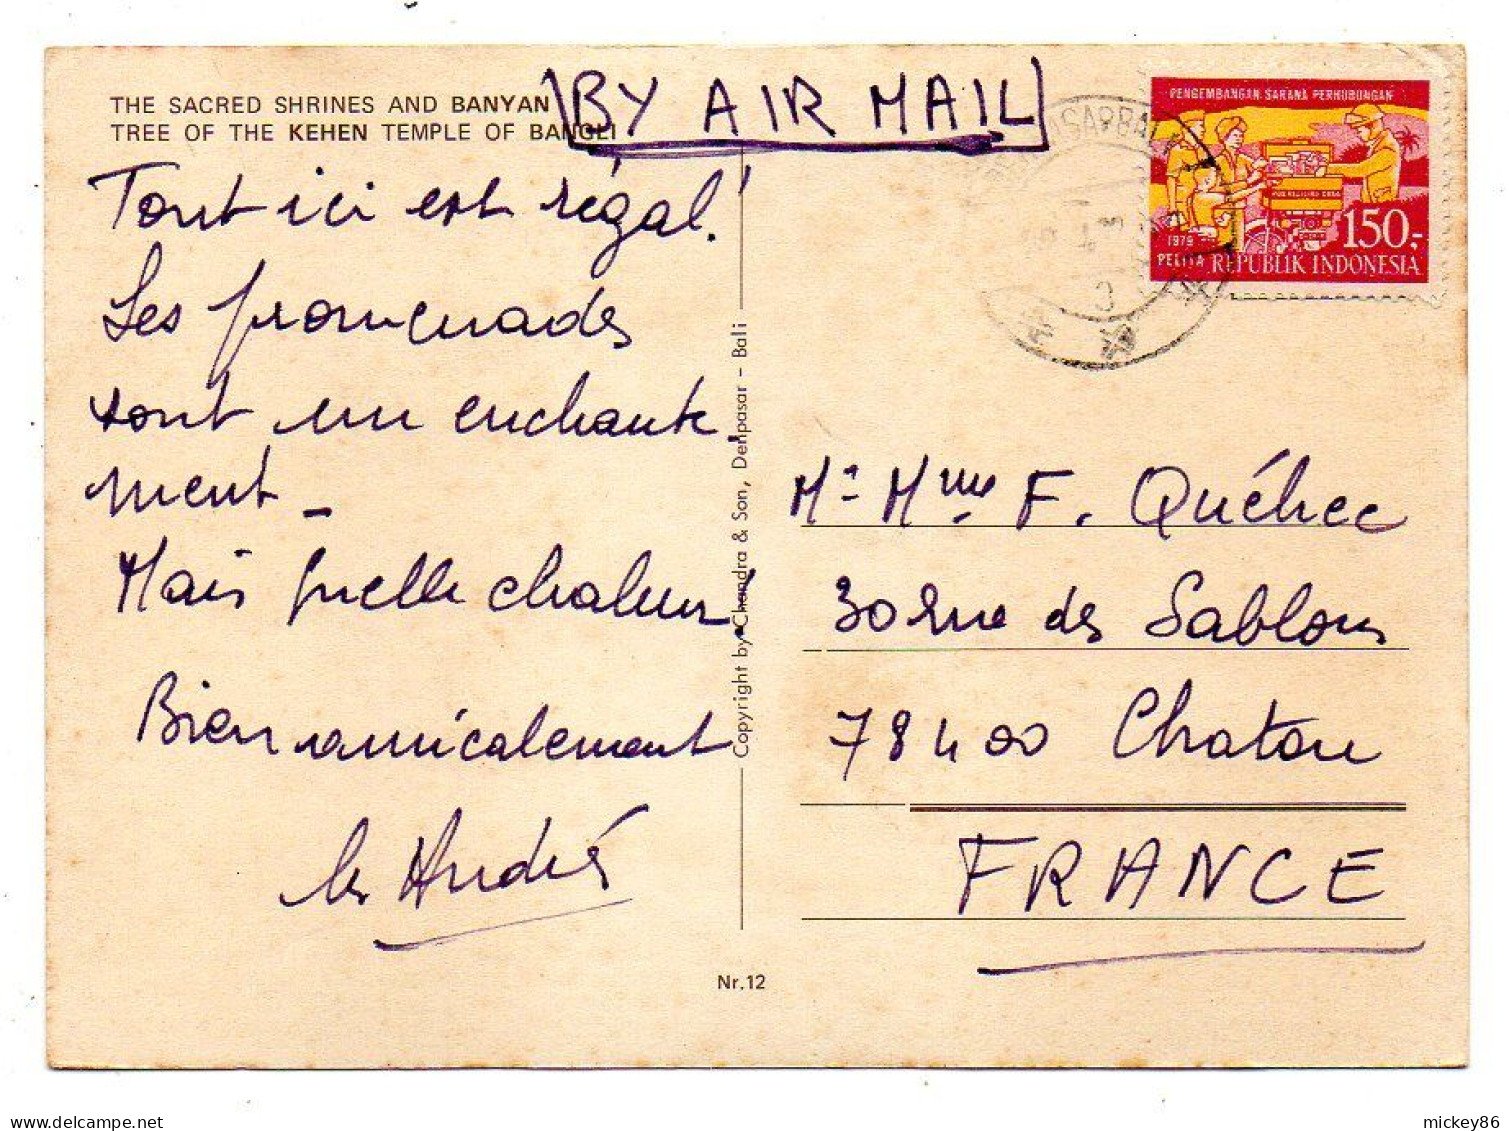 THE SACRED SHRINES AND BANYAN
TREE OF THE KEHEN TEMPLE OF BANGLI
BY AIR MAIL
Tout ici est régal !
Les promenades
sont un enchante-
ment -
Mais quelle chaleur !
Bien amicalement
les André
Copyright by Chandra & Son, Denpasar - Bali
Nr.12
PENGEMBANGAN SARANA PERHUBUNGAN
1979
PELITA
150,-
REPUBLIK INDONESIA
Mr Mme F. Québec
30 Rue des Sablons
78400 Chatou
FRANCE
mickey86